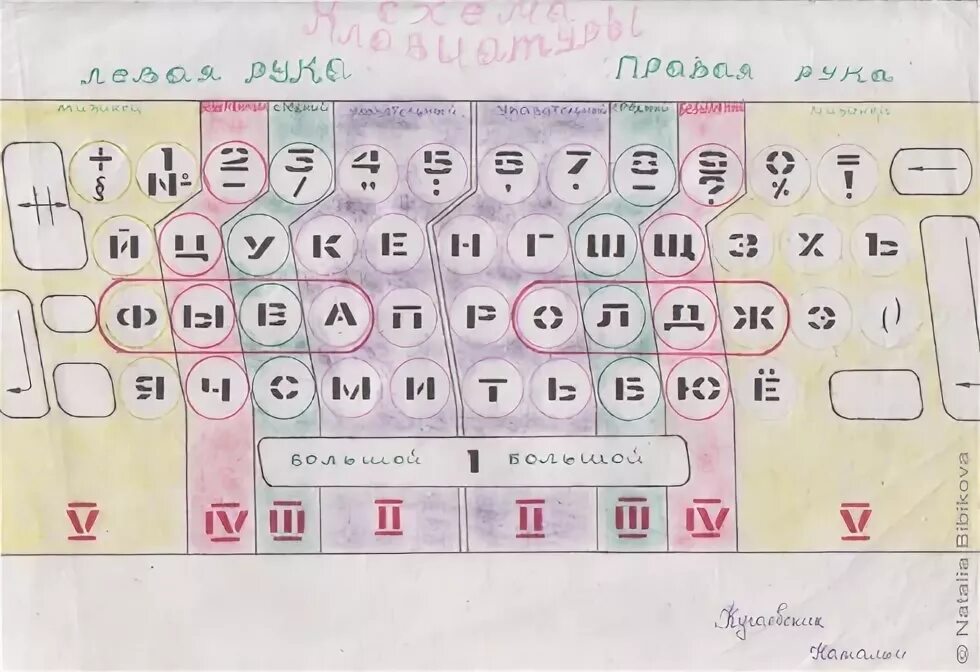 схема
клавиатуры
левая рука
правая рука
мизинец безымянный средний указательный указательный средний безымянный мизинец
+ 1 2 3 4 5 6 7 8 9 0 =
§ № – / " : , . _ ? % !
Й Ц У К Е Н Г Ш Щ З Х Ъ
Ф Ы В А П Р О Л Д Ж Э ()
Я Ч С М И Т Ь Б Ю Ё
большой 1 большой
V IV III II II III IV V
Кугаевских
Натальи
© Natalia Bibikova